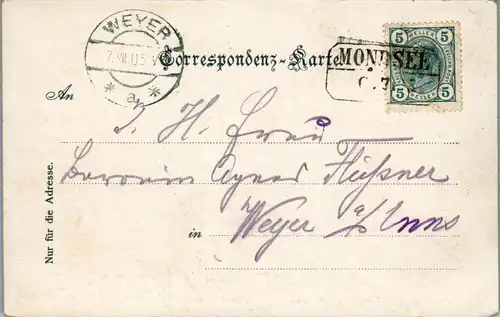 WEYER
7.VII.05
* a/E *
Correspondenz-Karte
MONDSEE
5 HELLER 5
5 HELLER 5
An
I. H. Frau
Baronin Agnes
Weyer a/Enns
in
Nur für die Adresse.